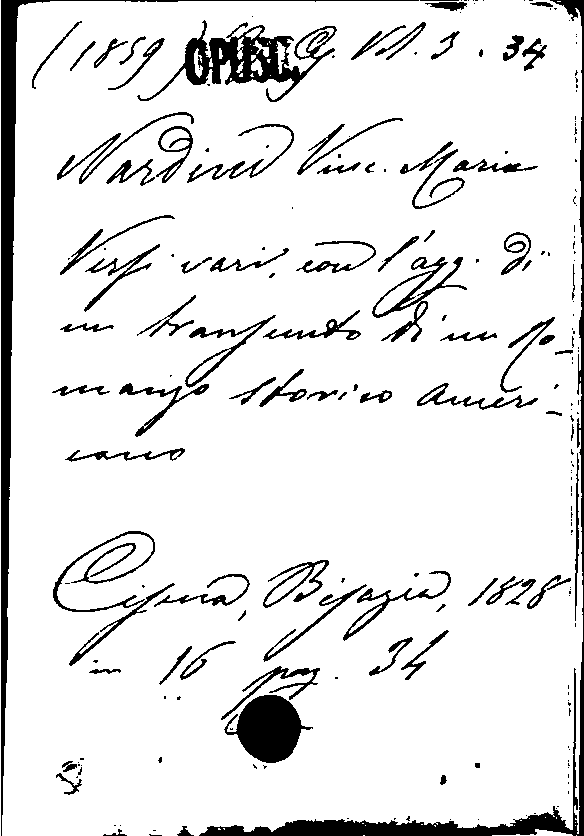 (1859) OPUSC. G. VI. 3. 34
Nardini Vinc. Maria
Versi vari, con l'agg. di
un transunto di un Ro-
manzo storico Ameri-
cano
Cesena, Bisazia, 1828
in 16 pag. 34